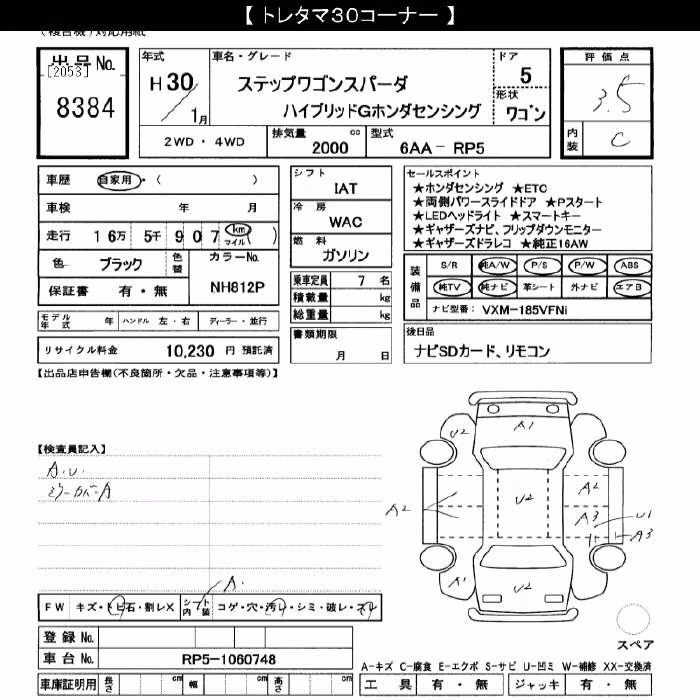 【トレタマ30コーナー】
(複合機)対応用紙
出品No.
[2053]
8384
年式
H30
1月
車名・グレード
ステップワゴンスパーダ
ハイブリッドGホンダセンシング
ドア
5
形状
ワゴン
評価点
3.5
内装
C
2WD・4WD
排気量
2000 cc
型式
6AA-RP5
車歴 自家用・( )
車検 年 月
走行 16万 5千 907 km マイル ( )
色 ブラック
色替
カラーNo.
NH812P
保証書 有・無
モデル年式 年
ハンドル 左・右
ディーラー・並行
リサイクル料金 10,230 円 預託済
シフト
IAT
冷房
WAC
燃料
ガソリン
乗車定員 7 名
積載量 kg
総重量 kg
書類期限
月 日
セールスポイント
★ホンダセンシング ★ETC
★両側パワースライドドア ★Pスタート
★LEDヘッドライト ★スマートキー
★ギャザーズナビ、フリップダウンモニター
★ギャザーズドラレコ ★純正16AW
装備品
S/R 純A/W P/S P/W ABS
純TV 純ナビ 革シート 外ナビ エアB
ナビ型番: VXM-185VFNi
後日品
ナビSDカード、リモコン
【出品店申告欄(不良箇所・欠品・注意事項等)】
【検査員記入】
A.U.
ミラーカバーA
A.
FW キズ・トビ石・割レX
シフト内装 コゲ・穴・汚レ・シミ・破レ・スレ
登録No.
車台No. RP5-1060748
車庫証明用 長さ cm 幅 cm 高さ cm
U2
A1
A2
U2
A2
A3
U1
A3
A1
U2
スペア
A-キズ C-腐食 E-エクボ S-サビ U-凹ミ W-補修 XX-交換済
工具 有・無 ジャッキ 有・無